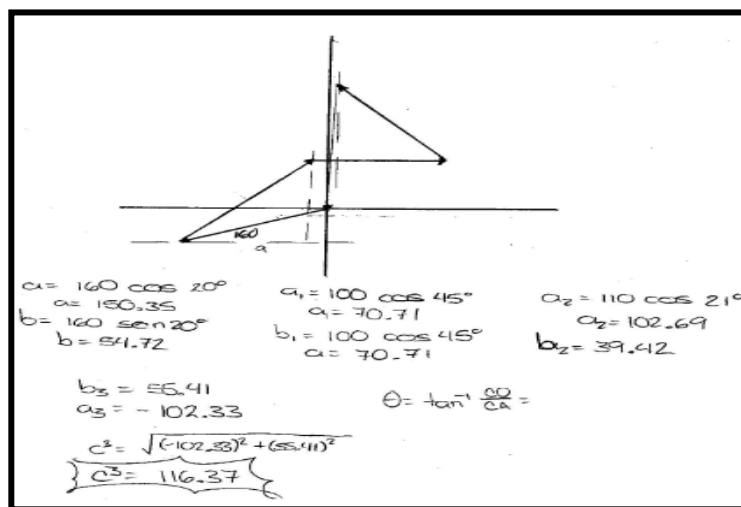 160
a
a = 160 cos 20°
a = 150.35
b = 160 sen 20°
b = 54.72
a₁ = 100 cos 45°
a₁ = 70.71
b₁ = 100 cos 45°
a = 70.71
a₂ = 110 cos 21°
a₂ = 102.69
b₂ = 39.42
b₃ = 55.41
a₃ = -102.33
θ = tan⁻¹ CO/CA =
c³ = √(-102.33)² + (55.41)²
c³ = 116.37